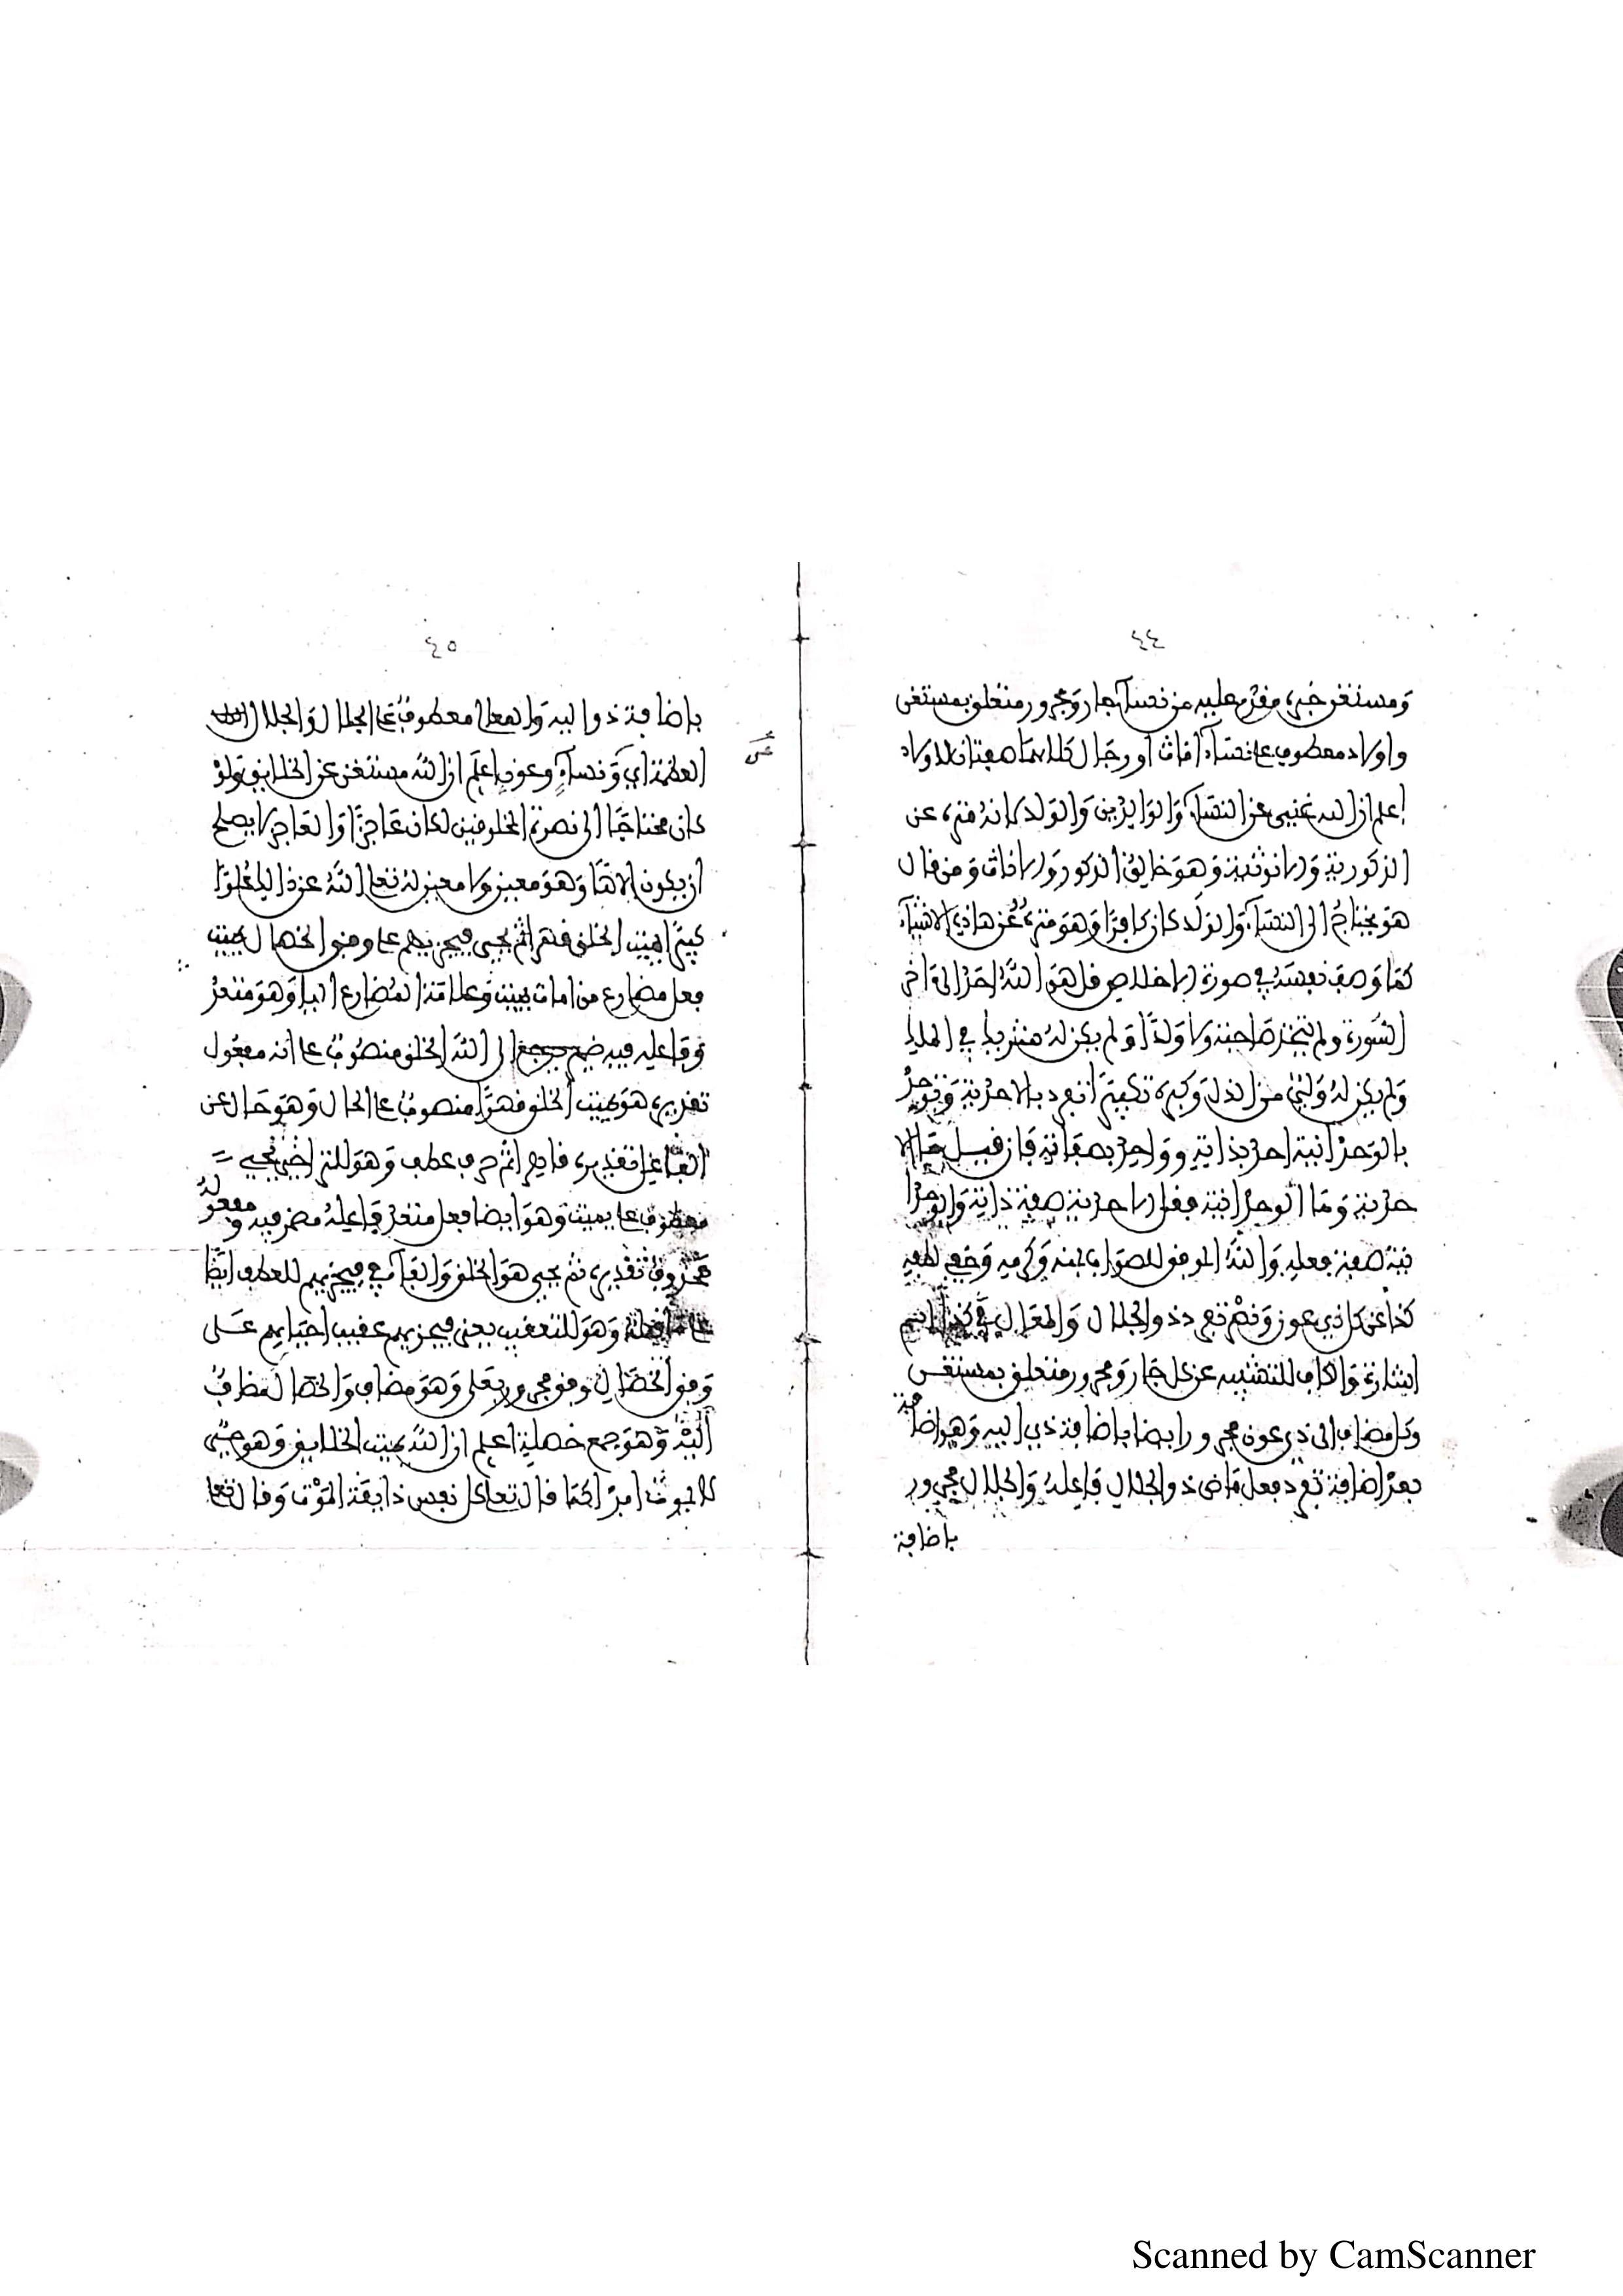 ٤٤
ومستغن خبره مقدم عليه من نساء جار ومجرور متعلق بمستغن
واولاد معطوف على نساء اناث او رجال كلاهما صفتان للاولاد
اعلم ان الله غني عن النساء والوالدين والولد لانه منزه عن
الذكورية والانوثية وهو خالق الذكور والاناث ومن قال
هو يحتاج الى النساء والولد كان كافرا وهو منزه عن هاذه الاشياء
كما وصف نفسه في صورة الاخلاص قل هو الله احد الى اخر
السورة ولم يتخذ صاحبة ولا ولدا ولم يكن له شريك في الملك
ولم يكن له ولي من الذل وكبره تكبيرا انفرد بالاحدية وتوحد
بالوحدانية احد بذاته وواحد بصفاته فان قيل ما الا
حدية وما الوحدانية فقل الاحدية صفة ذاته والوحدا
نية صفة فعله والله الموفق للصواب بمنه وكرمه وخفي لطفه
كذا عن كل ذي عون ونصر تفرد ذو الجلال والمعال في كذا اسم
اشارة والكاف للتشبيه عن كل جار ومجرور متعلق بمستغن
وكل مضاف الى ذي عون مجرور ايضا باضافة ذي اليه وهو اضافة
بعد اضافة تفرد فعل ماض ذو الجلال فاعله والجلال مجرور
باضافة
٤٥
باضافة ذو اليه والمعال معطوف على الجلال والجلال
العظمة اي ونساء وعون اعلم ان الله مستغن عن الخلايق ولو
كان محتاجا الى نصرة المخلوقين لكان عاجزا والعاجز لا يصلح
ان يكون الاها وهو معين ولا معين له تعالى الله عن ذالك علوا
كبيرا يميت الخلق قهرا ثم يحيي فيجزيهم على وفق الخصال يميت
فعل مضارع من امات يميت وعلامة المضارع اليا وهو متعد
وفاعله فيه ضمير يرجع الى الله الخلق منصوب على انه مفعول
تقديره هو يميت الخلق قهرا منصوب على الحال وهو حال عن
الفاعل تقديره قاهرا ثم حرف عطف وهو للتراخي يحيي
معطوف على يميت وهو ايضا فعل متعد فاعله مضمر فيه ومفعوله
محذوف تقديره ثم يحيي هو الخلق والفاء في فيجزيهم للعطف ايضا
على ما قبله وهو للتعقيب يعني فيجزيهم عقيب احيايهم على
وفق الخصال وفق مجرور بعلى وهو مضاف والخصال مضاف
اليه وهو جمع خصلة اعلم ان الله يميت الخلايق وهو حي
لا يموت ابدا كما قال تعالى كل نفس ذايقة الموت وقال تعالى
Scanned by CamScanner